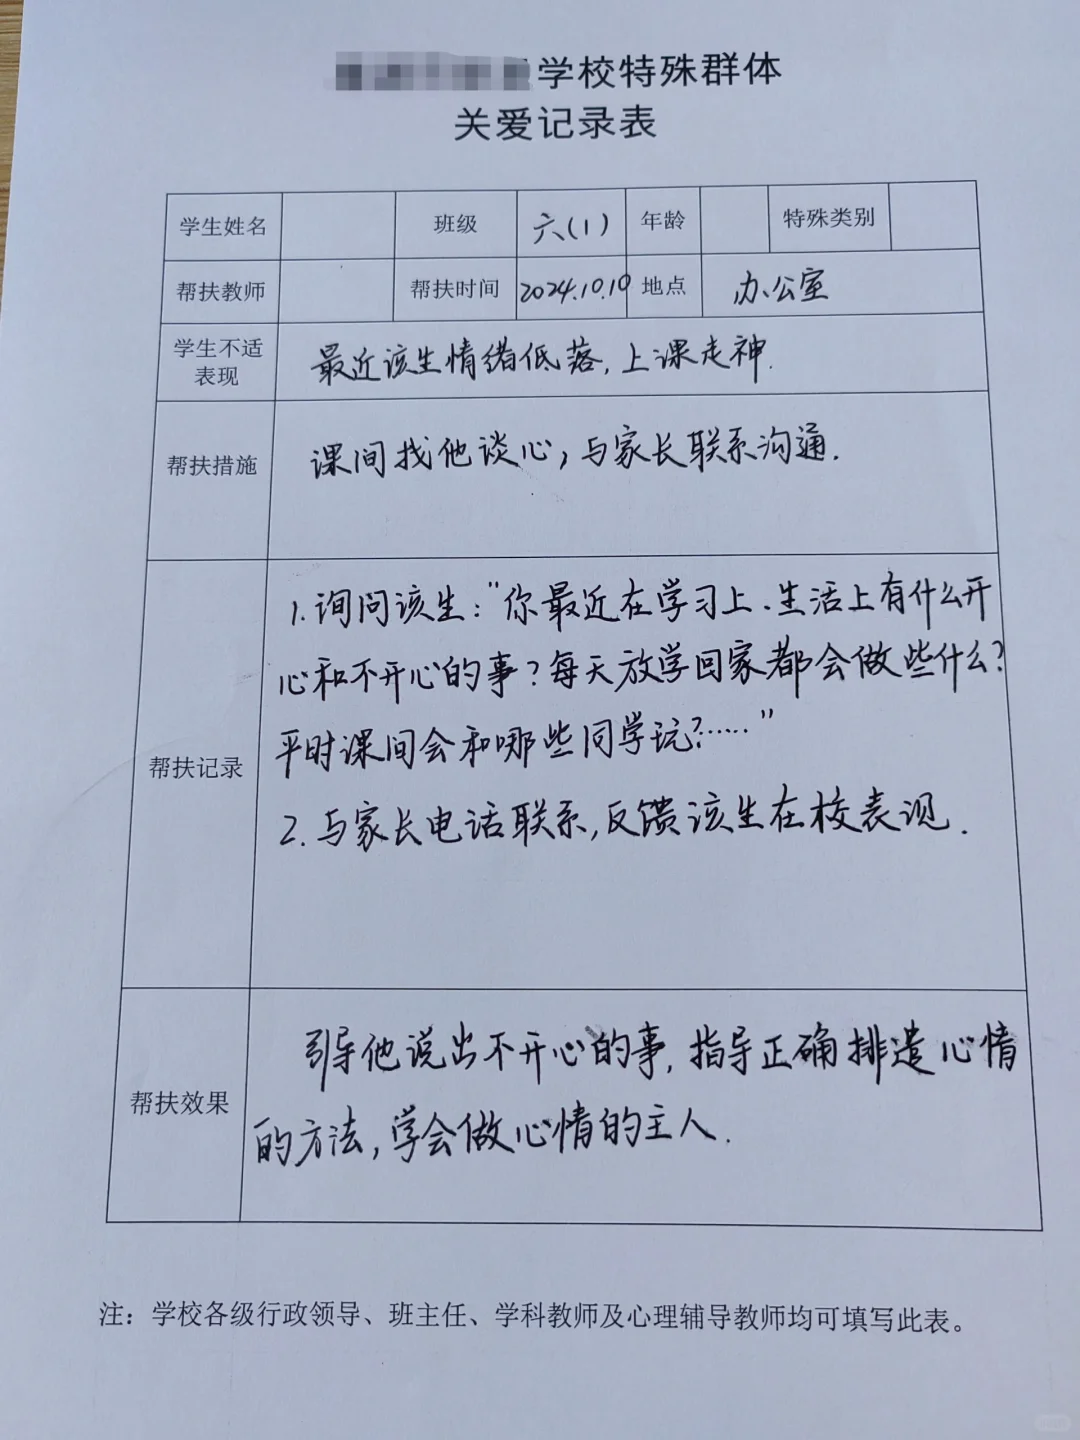 学校特殊群体
关爱记录表
学生姓名 班级 六(1) 年龄 特殊类别
帮扶教师 帮扶时间 2024.10.10 地点 办公室
学生不适
表现
最近该生情绪低落,上课走神.
帮扶措施
课间找他谈心,与家长联系沟通.
帮扶记录
1.询问该生:"你最近在学习上、生活上有什么开
心和不开心的事?每天放学回家都会做些什么?
平时课间会和哪些同学玩?……"
2.与家长电话联系,反馈该生在校表现.
帮扶效果
引导他说出不开心的事,指导正确排遣心情
的方法,学会做心情的主人.
注:学校各级行政领导、班主任、学科教师及心理辅导教师均可填写此表。